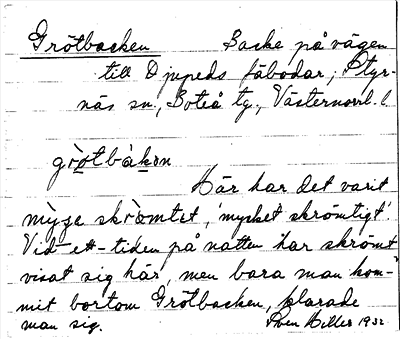 Grötbacken Backe på vägen
till Djupeds fäbodar, Styr-
näs sn., Boteå tg., Västernorrl. l
grötbàkən
Här har det varit
mỳge skròmtet, 'mycket skrömtigt'.
Vid ett-tiden på natten har skrömt
visat sig här, men bara man kom-
mit bortom Grötbacken, klarade
man sig. Sven Hiller 1932